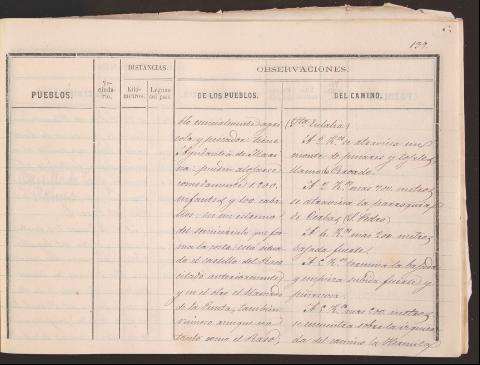 139.
PUEBLOS.
Ve-
cinda-
rio.
DISTANCIAS.
Kiló-
metros.
Leguas
del país.
OBSERVACIONES.
DE LOS PUEBLOS.
DEL CAMINO.
blo eminentemente agrí-
cola y pescador: tiene
Ayudantia de Mari-
na. pueden alojarse
comodamente 1.200
infantes y 400 caba-
llos: en un estremo
del semicirculo que for-
ma la costa esta
el castillo del Raso
citado anteriormente
y en el otro el llamado
de la Punta, tambien
ruinoso aunque no
tanto como el Raso;
(Sta. Eulalia)
A 3. Km. se atraviesa un
monte de pinares y
llamado
A 2. Km. mas 200 metros,
se atraviesa la parroquia
de (S. Pedro)
A 4. Km. mas 200 metros,
bajada fuerte.
A 5. Km. termina la bajada
y empieza subida fuerte y
penosa.
A 5. Km. mas 200 metros,
se encuentra sobre la izquier-
da del camino la Hermita